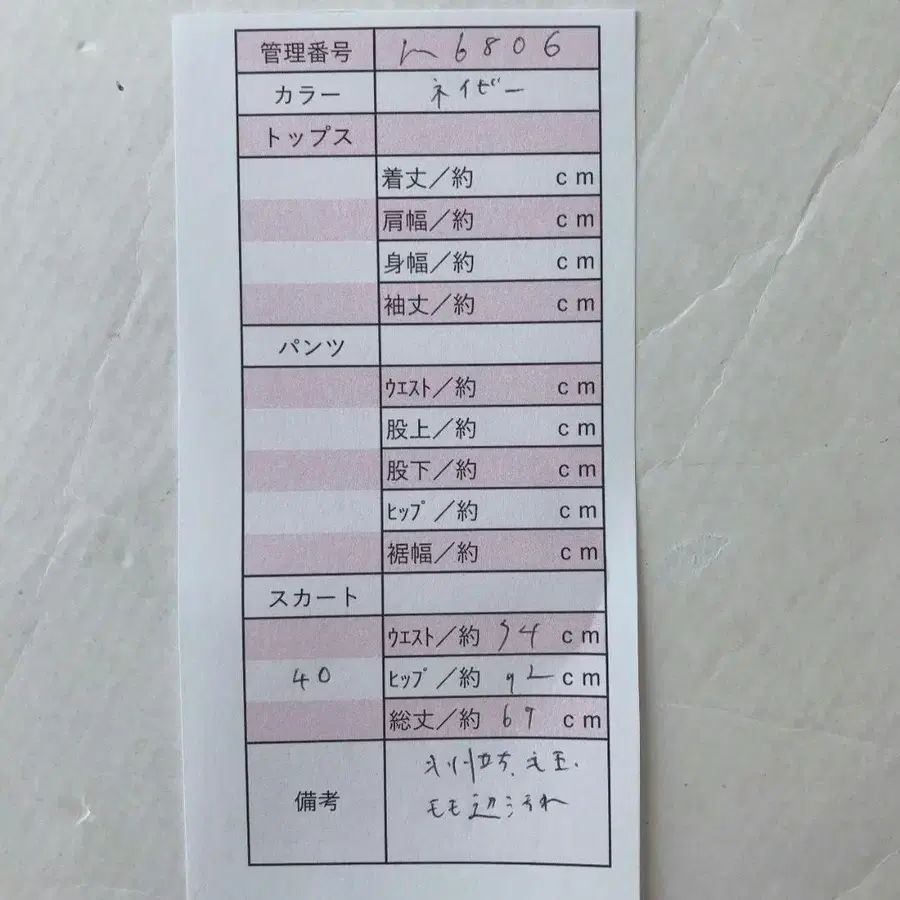 管理番号 h6806
カラー ネイビー
トップス
着丈／約 cm
肩幅／約 cm
身幅／約 cm
袖丈／約 cm
パンツ
ｳｴｽﾄ／約 cm
股上／約 cm
股下／約 cm
ﾋｯﾌﾟ／約 cm
裾幅／約 cm
スカート
ｳｴｽﾄ／約 74 cm
40 ﾋｯﾌﾟ／約 92 cm
総丈／約 67 cm
備考
モモ辺汚れ